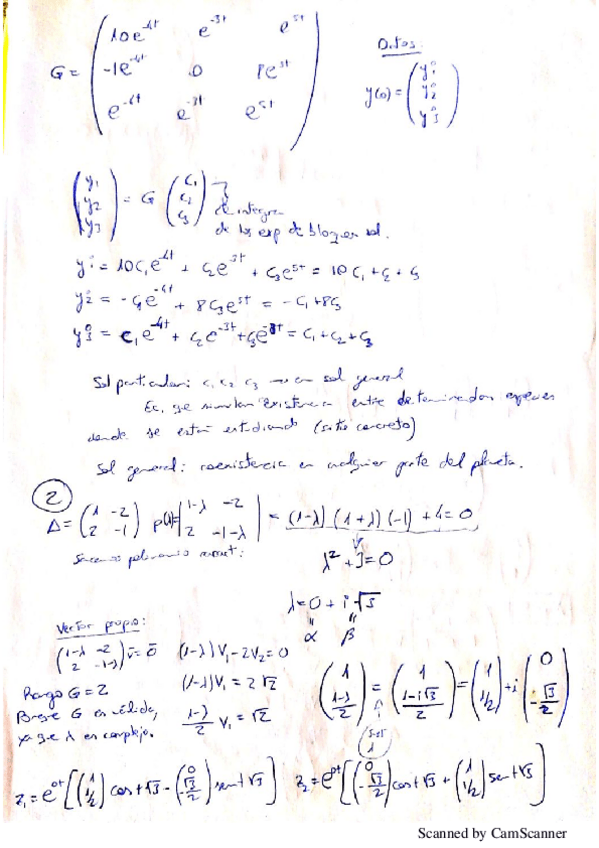 G = ( 10e^-4t e^-3t e^5t
-1e^-4t 0 8e^5t
e^-4t e^-3t e^5t )
Datos:
y(0) = ( y1° y2° y3° )
( y1 y2 y3 ) = G ( c1 c2 c3 )
de integra
de las exp de bloques sol.
y1° = 10c1e^-4t + c2e^-3t + c3e^5t = 10c1 + c2 + c3
y2° = -c1e^-4t + 8c3e^5t = -c1 + 8c3
y3° = c1e^-4t + c2e^-3t + c3e^-8t = c1 + c2 + c3
Sol particular: c1 c2 c3 en sol general
Ec. que simulan Existencia entre determinadas especies
donde se están estudiando (sitio concreto)
Sol general: coexistencia en cualquier parte del planeta.
2
A = ( 1 -2 2 -1 ) p(λ) = | 1-λ -2 2 -1-λ | = (1-λ)(1+λ)(-1) + 4 = 0
Sacamos polinomio caract:
λ² + 3 = 0
λ = 0 + i√3
α β
Vector propio:
( 1-λ -2 2 -1-λ ) v̄ = ō (1-λ)V1 - 2V2 = 0
Rango G = 2 (1-λ)V1 = 2V2
Base G es válida, 1-λ/2 V1 = V2
ya que λ es complejo.
( 1 1-λ/2 ) = ( 1 1-i√3/2 ) = ( 1 1/2 ) + i ( 0 -√3/2 )
sust λ
z1 = e^0t [ ( 1 1/2 ) cos t√3 - ( 0 -√3/2 ) sen t√3 ]
z2 = e^0t [ ( 0 -√3/2 ) cos t√3 + ( 1 1/2 ) sen t√3 ]
Scanned by CamScanner